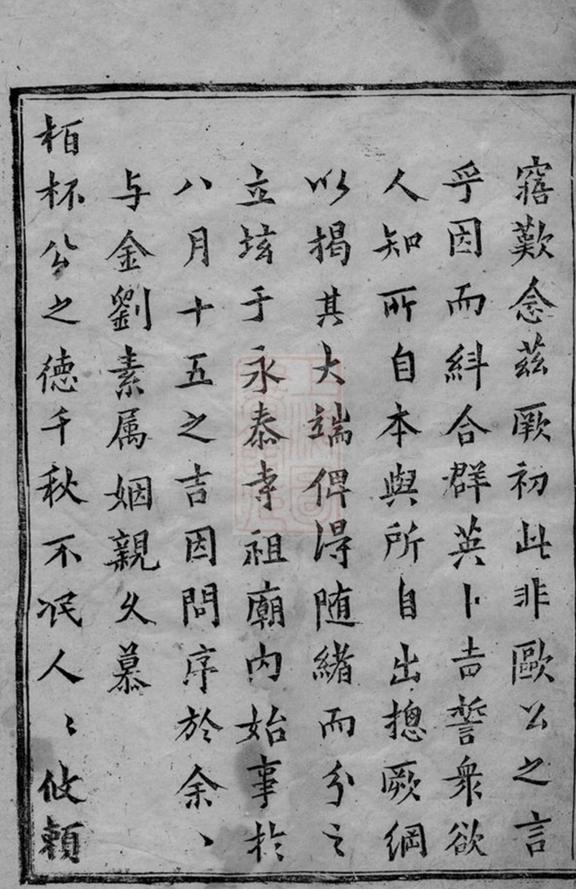 寤歎念茲厥初此非歐公之言
乎因而糾合群英卜吉誓衆欲
人知所自本與所自出摠厥綱
以揭其大端俾得随緒而分之
立垓于永泰寺祖廟内始事於
八月十五之吉因問序於余、
与金劉素属姻親久慕
栢杯公之德千秋不泯人〻攸賴